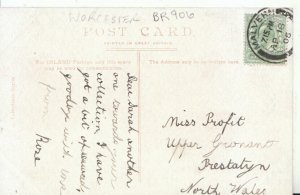 WORCESTER BR906
POST CARD.
PRINTED IN GREAT BRITAIN.
For INLAND Postage only this space
The Address only to be written here.
MALVERN
7.15 PM
AP 18
06
Dear Sarah another
one towards your
collection I have
got a bit of
goodbye with love
from Rose
Miss Profit
Upper Gronant
Prestatyn
North Wales